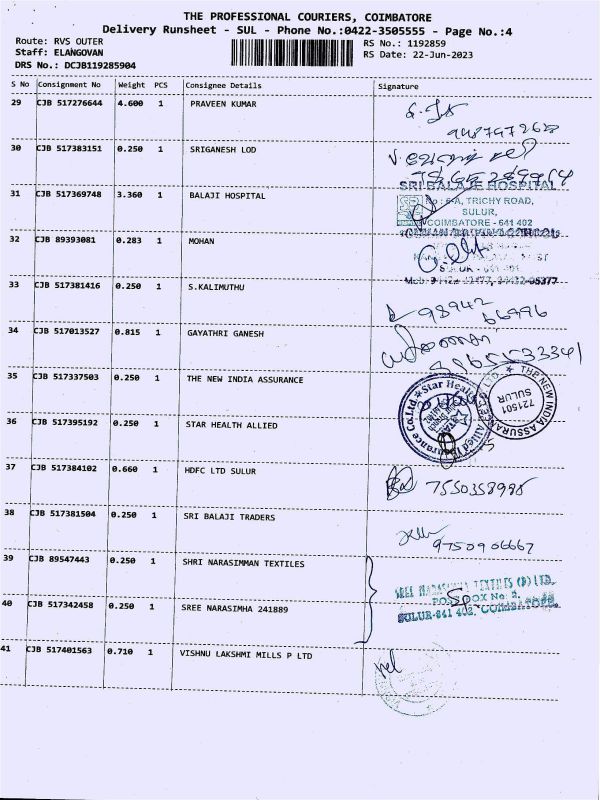 THE PROFESSIONAL COURIERS, COIMBATORE
Delivery Runsheet - SUL - Phone No.:0422-3505555 - Page No.:4
Route: RVS OUTER
Staff: ELANGOVAN
DRS No.: DCJB119285904
RS No.: 1192859
RS Date: 22-Jun-2023
S No Consignment No Weight PCS Consignee Details Signature
29 CJB 517276644 4.600 1 PRAVEEN KUMAR
30 CJB 517383151 0.250 1 SRIGANESH LOD
31 CJB 517369748 3.360 1 BALAJI HOSPITAL
SRI BALAJE HOSPITAL
No : 6-A, TRICHY ROAD,
SULUR,
COIMBATORE - 641 402
32 CJB 89393081 0.283 1 MOHAN
33 CJB 517381416 0.250 1 S.KALIMUTHU
98942
66996
34 CJB 517013527 0.815 1 GAYATHRI GANESH
35 CJB 517337503 0.250 1 THE NEW INDIA ASSURANCE
THE NEW INDIA ASSURANCE
721501
SULUR
36 CJB 517395192 0.250 1 STAR HEALTH ALLIED
Star Health Allied Insurance Co.Ltd
37 CJB 517384102 0.660 1 HDFC LTD SULUR
7550358998
38 CJB 517381504 0.250 1 SRI BALAJI TRADERS
9750906667
39 CJB 89547443 0.250 1 SHRI NARASIMMAN TEXTILES
40 CJB 517342458 0.250 1 SREE NARASIMHA 241889
TEXTILES (P) LTD.
SULUR-641 402, COIMBATORE.
41 CJB 517401563 0.710 1 VISHNU LAKSHMI MILLS P LTD